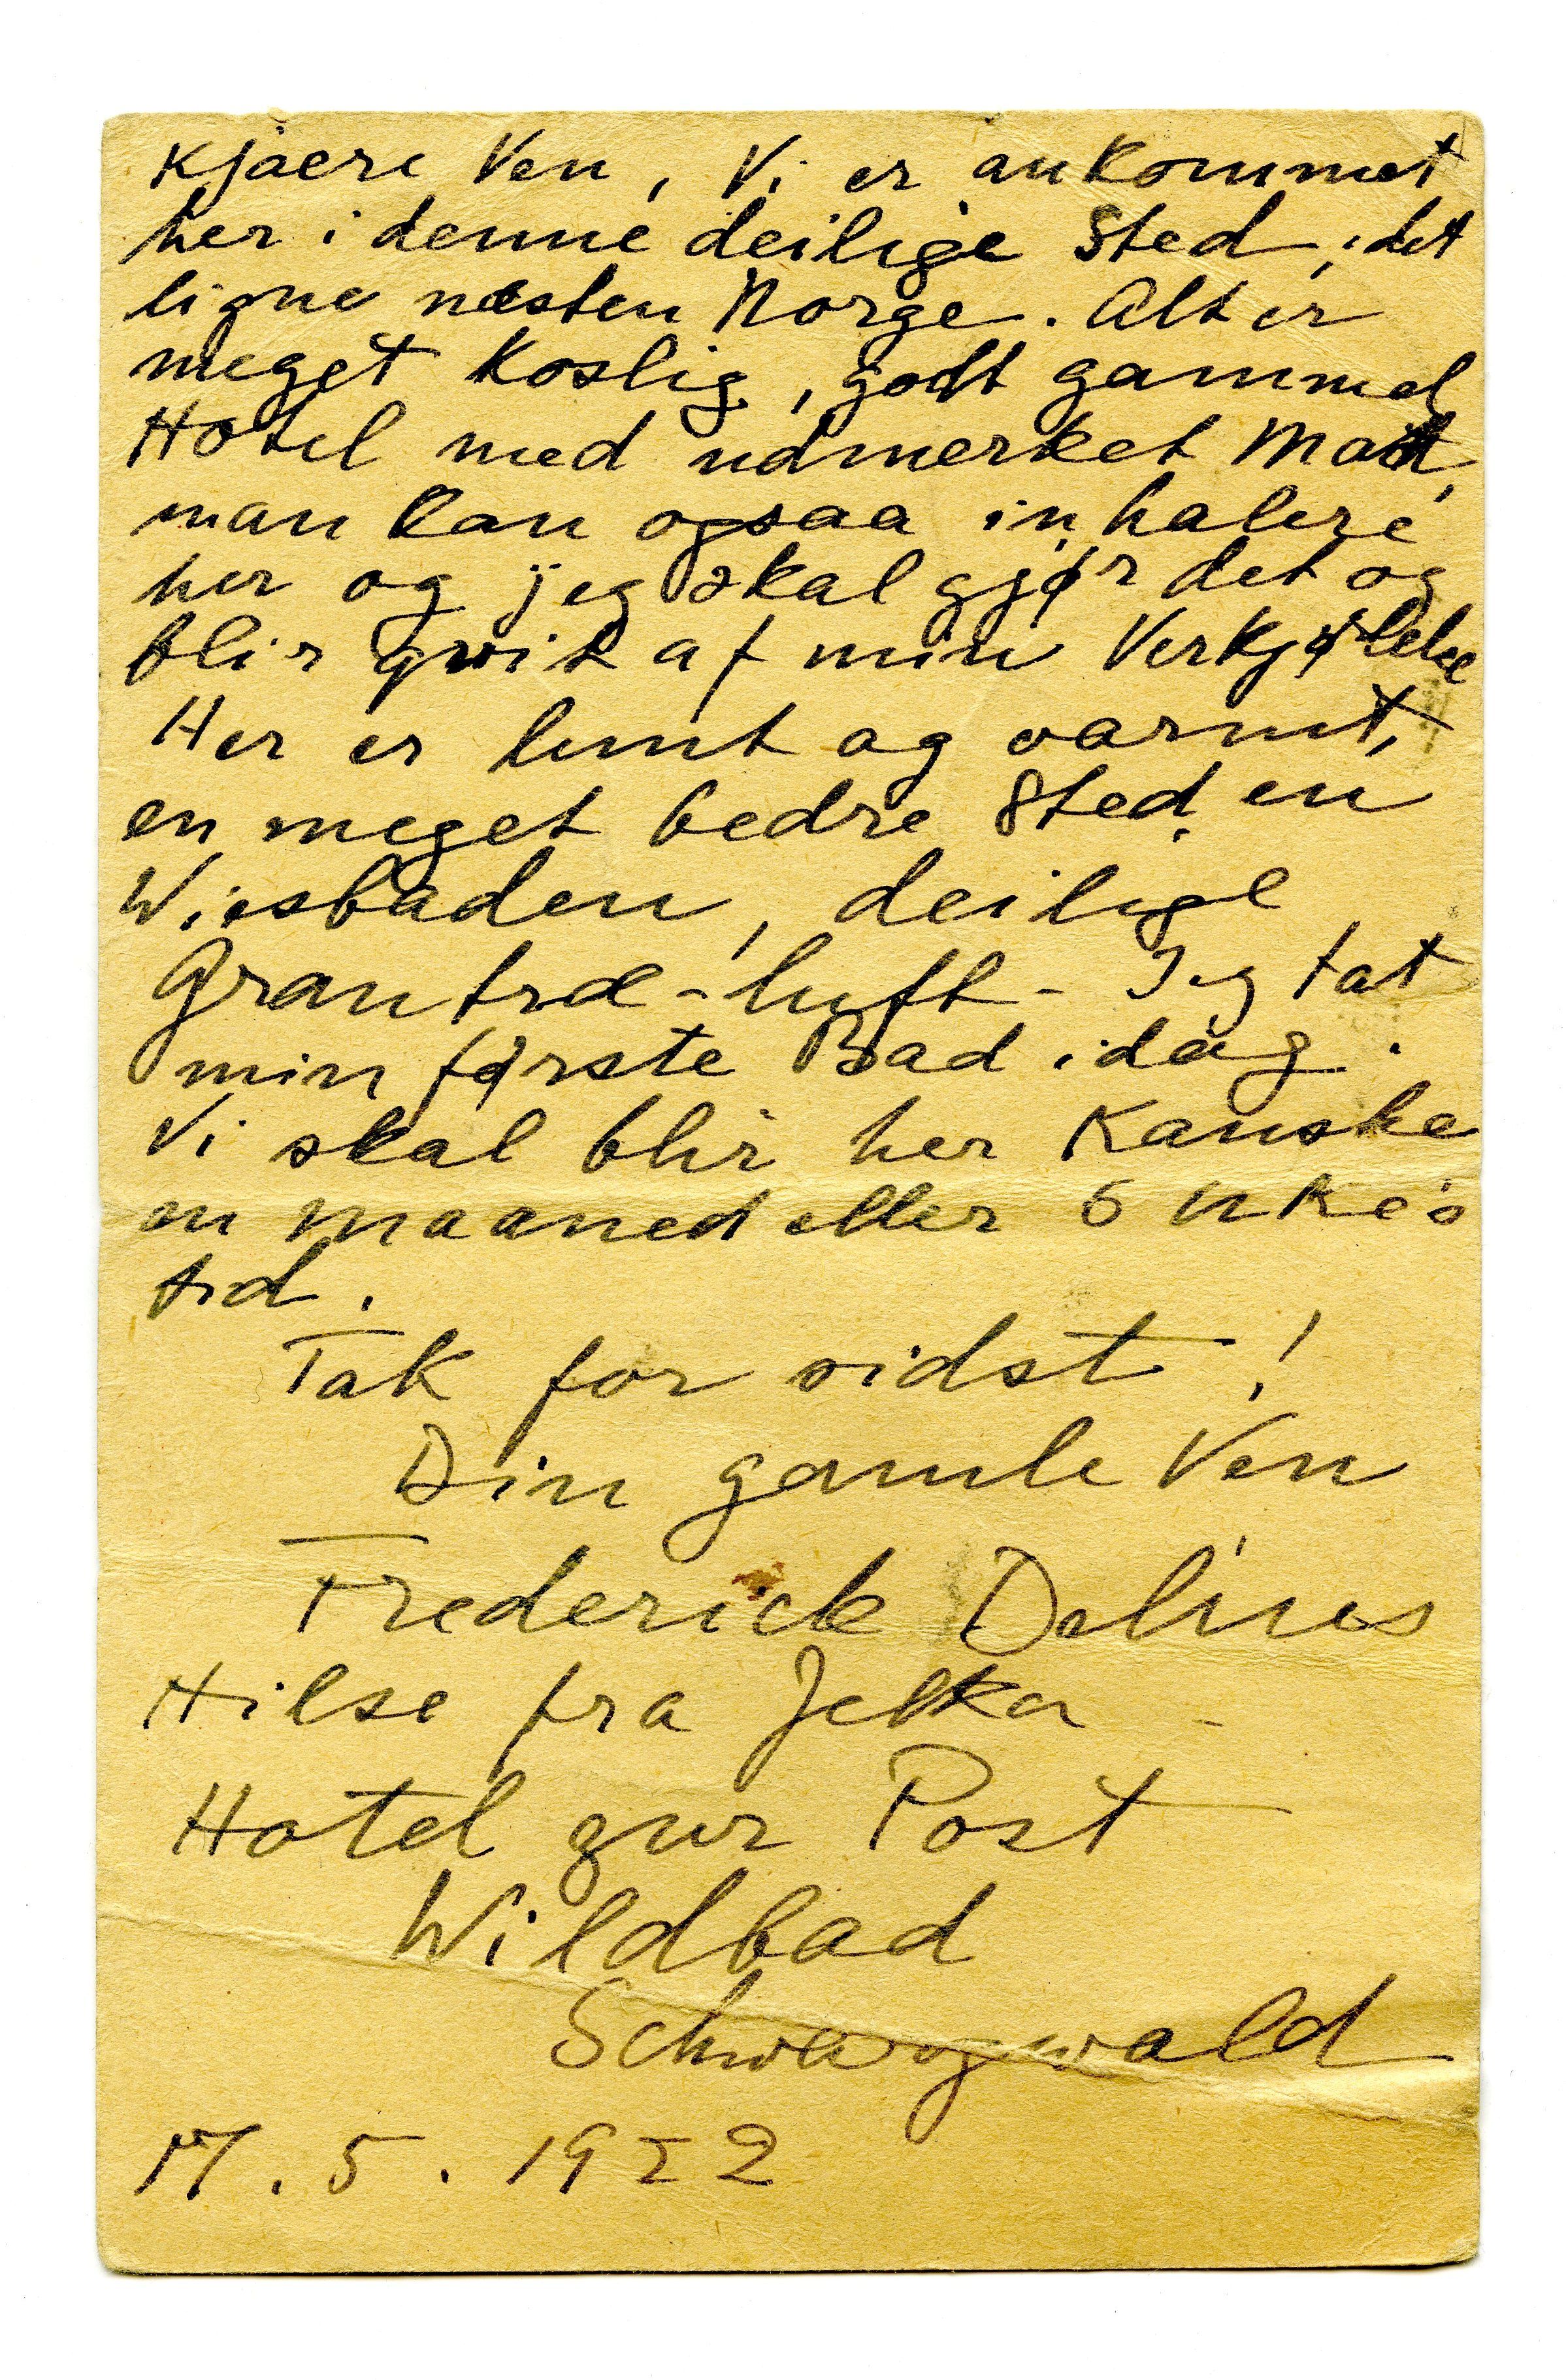 Kjaere Ven, Vi er ankommet
her i denne deilige Sted, det
ligne næsten Norge. Alt er
meget koslig, godt gammel
Hotel med udmerket Mad,
man kan ogsaa inhalere
her og jeg skal gjør det og
blir qvit af min Verkjølelse
Her er lunt og varmt,
en meget bedre Sted en
Wiesbaden, deilige
Grantræ-luft - Jeg tat
min første Bad idag.
Vi skal blir her Kanske
en maaned eller 6 uke's
tid.
Tak for sidst!
Din gamle Ven
Frederick Delius
Hilse fra Jelka -
Hotel zur Post
Wildbad
Schwarzwald
17. 5. 1922